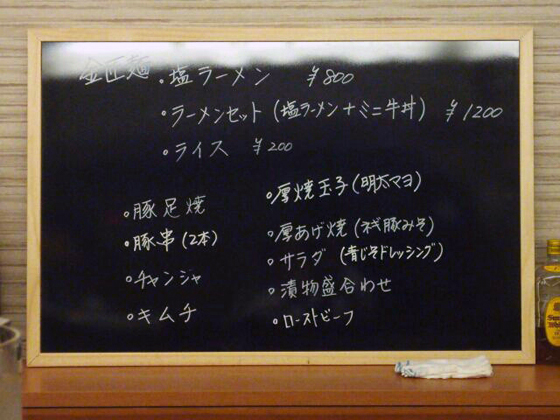 ・塩ラーメン ¥800
・ラーメンセット(塩ラーメン+ミニ牛丼) ¥1200
・ライス ¥200
○豚足焼
○豚串(2本)
○チャンジャ
○キムチ
○厚焼玉子(明太マヨ)
○厚あげ焼(豚みそ)
○サラダ(青じそドレッシング)
○漬物盛合わせ
○ローストビーフ